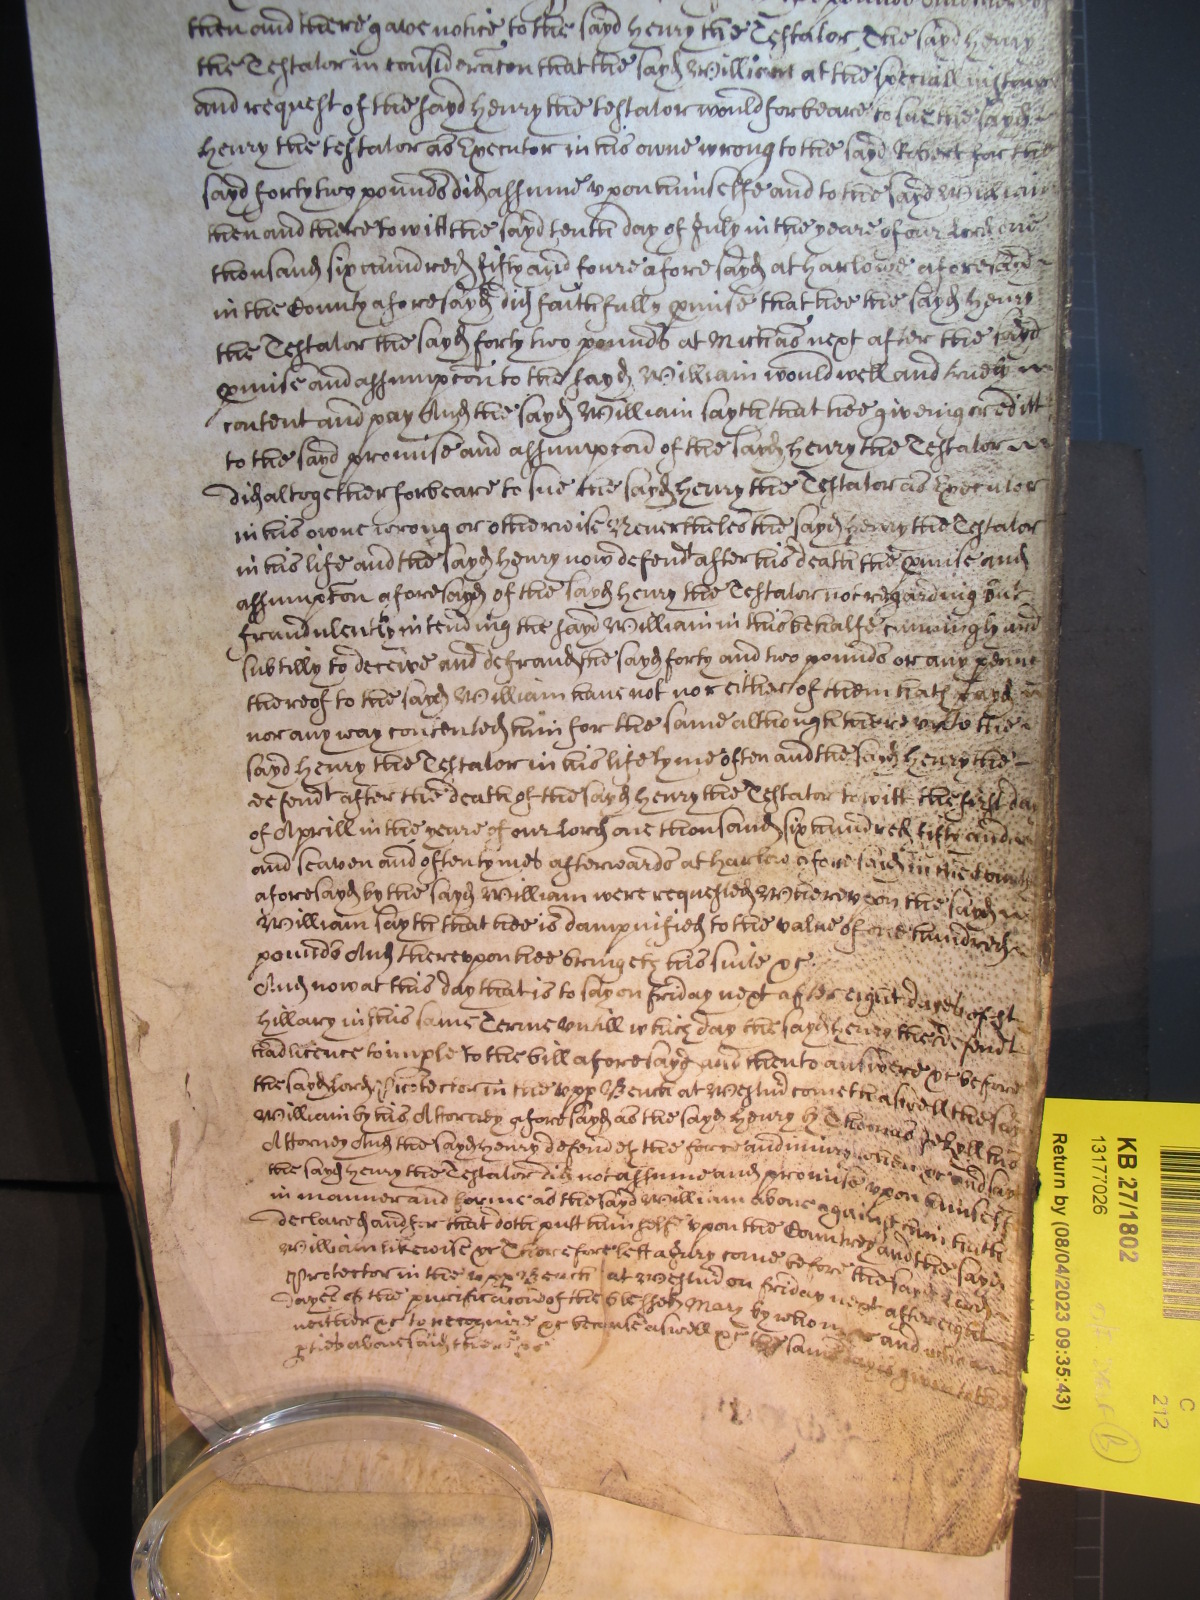 then and there gave notice to the sayd Henry the Testator The sayd Henry
the Testator in consideracon that the sayd William at the speciall instance
and request of the sayd Henry the testator would forbeare to sue the sayd
Henry the testator as Executor in his owne wrong to the sayd Robert for the
sayd forty two pounds did assume vpon himselfe and to the sayd William
then and there to witt the sayd tenth day of July in the yeare of our Lord one
thousand six hundred fifty and foure aforesayd at Harlowe aforesayd
in the County aforesayd did faithfully pmise that hee the sayd Henry
the Testator the sayd forty two pounds at Michas next after the sayd
pmise and assumpcon to the sayd William would well and truly
content and pay And the sayd William sayth that hee giveing creditt
to the sayd promise and assumpcon of the sayd Henry the Testator
did altogether forbeare to sue the sayd Henry the Testator as Executor
in his owne wrong or otherwise Neverthelesse the sayd Henry the Testator
in his life and the sayd Henry now defendt after his death the pmise and
assumpcon aforesayd of the sayd Henry the Testator not regarding but
fraudulently intending the sayd William in this behalfe cuningly and
subtilly to deceive and defraud the sayd forty and two pounds or any penny
thereof to the sayd William have not nor either of them hath payd
nor any way contented him for the same although therevnto the
sayd Henry the Testator in his life tyme often and the sayd Henry the
defendt after the death of the sayd Henry the Testator to witt the first day
of Aprill in the yeare of our Lord one thousand six hundred fifty and
and seaven and oftentymes afterwards at Harlow aforesaid in the County
aforesayd by the sayd William were requested Wherevpon the sayd
William sayth that hee is dampnified to the value of one hundred
pounds And therevpon hee bringeth his suite &c
And now at this day that is to say on Friday next after eight dayes of st
Hillary in this same Terme vntill which day the sayd Henry the defendt
had licence to imple to the bill aforesayd and then to answere &c before
the sayd Lord Protector in the vpp Bench at Westm cometh aswell the sayd
William by his Attorney aforesayd as the sayd Henry by Thomas Jekyll his
Attorney And the sayd Henry defendeth the force and iniury when &c and saith
the sayd Henry the Testator did not assume and promise vpon himself
in manner and forme as the sayd William above against him hath
declared and for that doth putt himself vpon the Countrey and the sayd
William likewise &c Therefore lett a Jury come before the sayd Lord
Protector in the vpp Bench at Westm on Friday next after eight
dayes of the purificacon of the blessed Mary by whom &c and who
neither &c to recognize &c because aswell &c the same day is given to the
pties abovesaid there &c
KB 27/1802
13177026
Return by (08/04/2023 09:35:43)
C
212